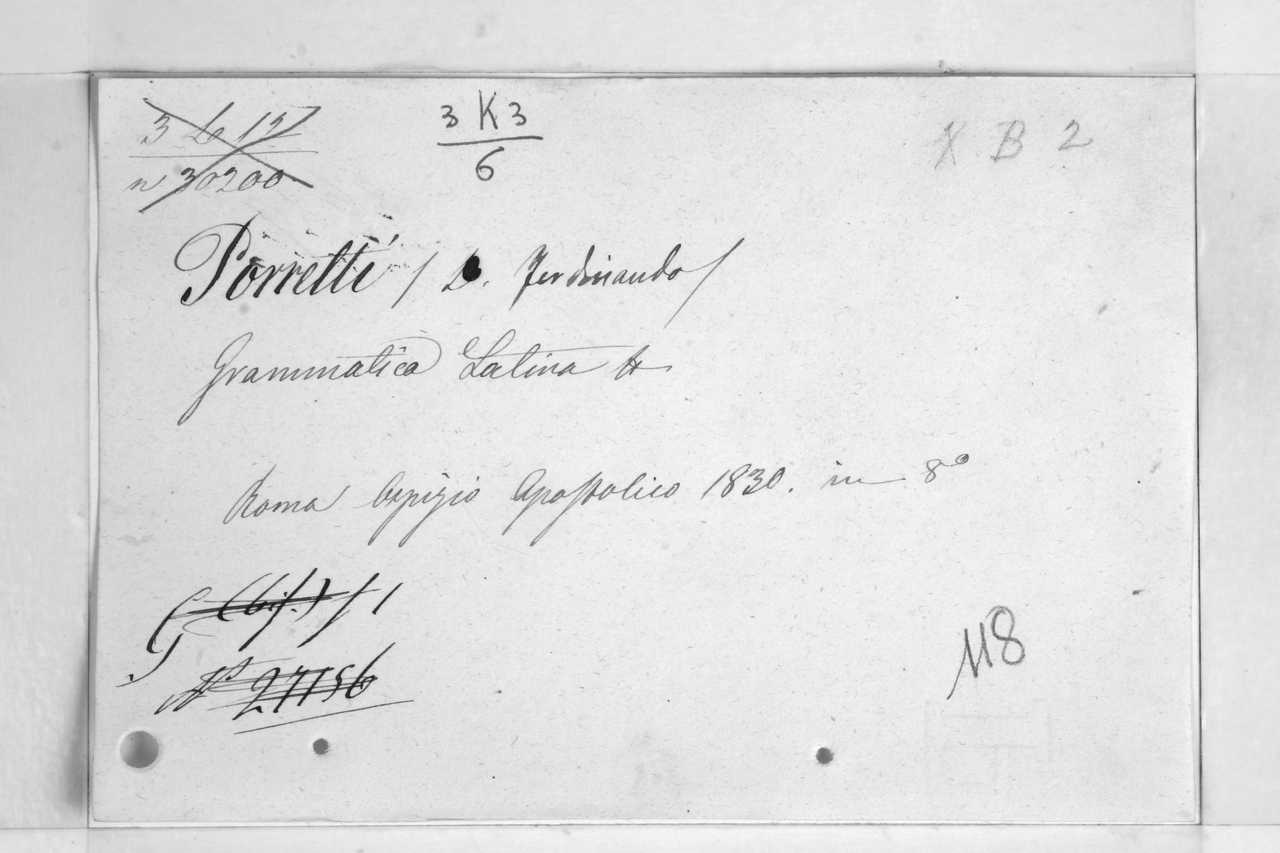 3 L 17
n 30200
3 K 3
6
X B 2
Porretti / D. Ferdinando /
Grammatica Latina &
Roma Ospizio Apostolico 1830. in 8°
G (bis.) / 1
N° 27156
118